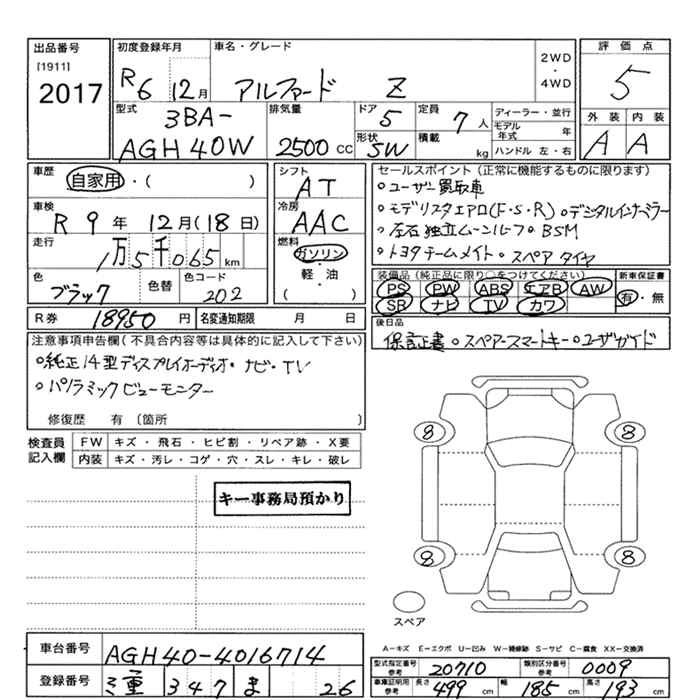 出品番号 初度登録年月 車名・グレード 評価点
[1911] 2WD・4WD
2017 R6 12月 アルファード Z 5
型式 排気量 ドア 定員 ディーラー・並行 外装 内装
3BA- 5 7人 モデル年式 年 A A
AGH40W 2500cc 形状 5W 積載 kg ハンドル 左・右
車歴 シフト セールスポイント(正常に機能するものに限ります)
自家用・( ) AT ○ユーザー買取車
車検 冷房 ○モデリスタエアロ(F・S・R) ○デジタルインナーミラー
R9年 12月(18日) AAC ○左右独立ムーンルーフ ○BSM
走行 燃料 ○トヨタチームメイト ○スペアタイヤ
1万5千065km ガソリン 装備品(純正品に限り○をつけてください) 新車保証書
色 色替 色コード 軽・油 PS PW ABS エアB AW 有・無
ブラック 202 ( ) SR ナビ TV カワ
R券 18950円 名変通知期限 月 日 後日品
保証書 ○スペアースマートキー ○ユーザーガイド
注意事項申告欄(不具合内容等は具体的に記入して下さい)
○純正14型ディスプレイオーディオ・ナビ・TV
○パノラミックビューモニター
修復歴 有 〔箇所 〕
検査員 FW キズ・飛石・ヒビ割・リペア跡・X要
記入欄 内装 キズ・汚レ・コゲ・穴・スレ・キレ・破レ
8 8
キー事務局預かり
8 8
スペア
A=キズ E=エクボ U=凹み W=補修跡 S=サビ C=腐食 XX=交換済
車台番号 AGH40-4016714 型式指定番号 参考 20710 類別区分番号 参考 0009
登録番号 347 ま 26 車庫証明用 参考 長さ 499cm 幅 185cm 高さ 193cm